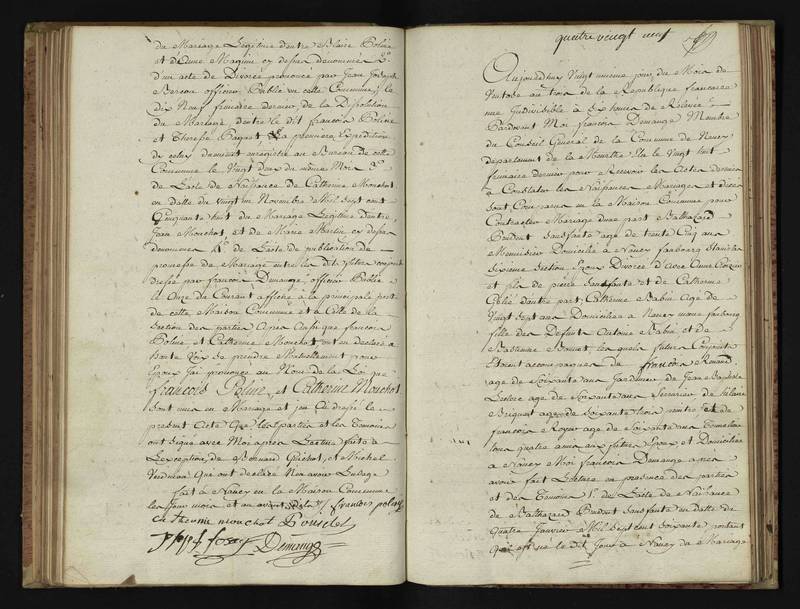 du Mariage Légitime d'entre Blaise Poline
et d'Anne Magine cy dessus denommés 2°
d'un acte de Divorce prononcé par Jean Joseph
officier Public en cette Commune, le
dix Neuf frimaire dernier, de la Dissolution
du Mariage d'entre le dit françois Poline
et Therese La premiere Expédition
de celuy dument enregistré au Bureau de cette
Commune le Vingt deux du même Mois 3°
de l'acte de Naissance de Catherine Mouchot
en datte du Vingt un Novembre Mil Sept cent
Cinquante huit du Mariage Légitime d'entre
Jean Mouchot, et de Marie Martin cy dessus
denommés 4° de l'acte de publication de
promesse de Mariage entre les dits futurs conjoints
dressé par françois Demange, officier Public
le Onze du Courant affiché à la principale porte
de cette Maison Commune et à Celle de la
Section des parties après aussi que françois
Poline, et Catherine Mouchot, ont eu déclaré à
haute Voix se prendre Mutuellement pour
Epoux J'ai prononcé au Nom de la Loi que
françois Poline, et Catherine Mouchot
sont unis en Mariage et j'en ai dressé le
présent acte Que les parties et les temoins
ont signé avec Moi après Lecture faite à
L'exception de Bernard Guichot, et Michel
Verdenal Qui ont déclaré N'en avoir L'usage
fait à Nancy en la Maison Commune
les Jour mois et an avant dits françois poline
Catherine mouchot
Demange
quatre vingt neuf
Aujourd'huy Vingt unieme jour du Mois de
Ventose an trois de la République francaise
une Indivisible à dix heures de Relevée
Pardevant Moi françois Demange Membre
du Conseil Général de la Commune de Nancy
département de la Meurthe Elu le Vingt huit
frimaire dernier pour Recevoir les Actes destinés
à Constater les Naissances Mariages et décès
sont Comparus en la Maison Commune pour
Contracter Mariage d'une part Balthazard
Prudent Sansfaute agé de trente Cinq ans
Menuisier Domicilié à Nancy faubourg Stanislas
Sixieme Section Epoux Divorcé d'avec Anne
et fils de pierre Sansfaute et de Catherine
Gelié d'autre part; Catherine Babin age de
Vingt Sept ans Domiciliée à Nancy meme faubourg
fille des Défunts Antoine Babin et de
Barbe Bonnet, les quels futurs Conjoints
Etoient accompagnés de françois Renard
agé de Soixante ans Jardinier de Jean Baptiste
Leclere agé de Soixante ans Serrurier de hilaire
Briquet agé de Soixante trois peintre et de
françois Royer agé de Soixante ans Tonnelier
tous quatre amis aux futurs Epoux et Domiciliés
à Nancy Moi françois Demange après
avoir fait Lecture en presence des parties
et des temoins 1° de l'acte de Naissance
de Balthazard Prudent Sansfaute en datte du
Quatre Janvier Mil Sept cent Soixante portant
Qu'il est né le dit Jour à Nancy du Mariage